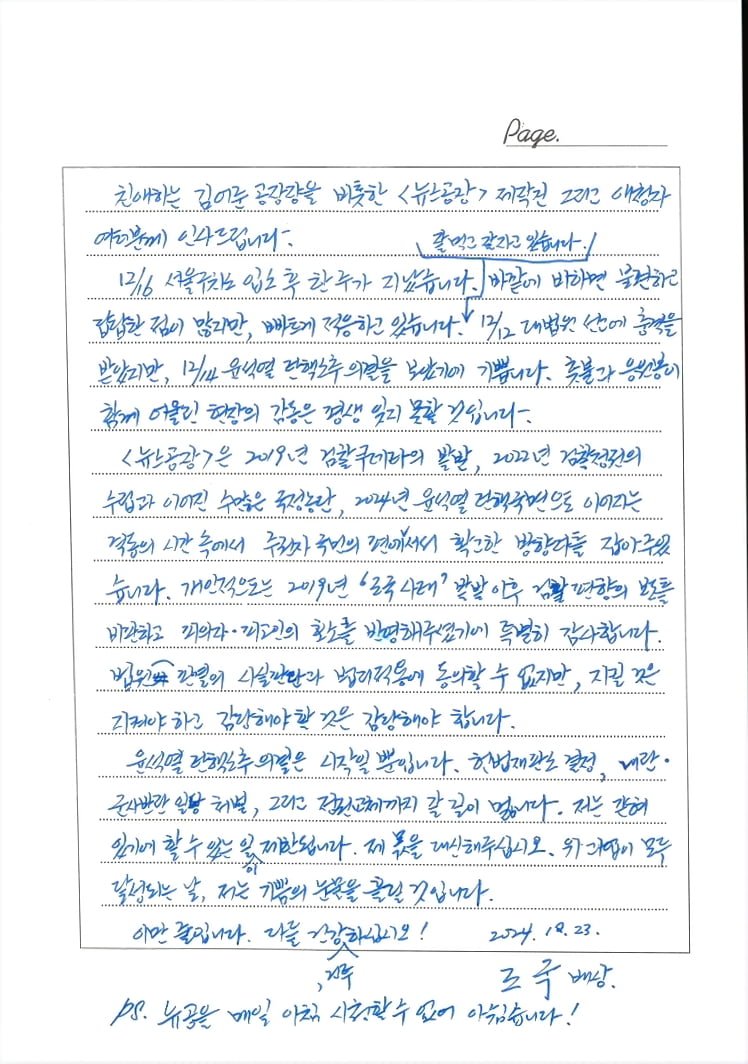 Page.
친애하는 김어준 공장장을 비롯한 <뉴스공장> 제작진 그리고 애청자
여러분께 인사드립니다.
잘 먹고 잘 자고 있습니다.
12/16 서울구치소 입소 후 한 주가 지났습니다. 바깥에 비하면 불편하고
답답한 점이 많지만, 빠르게 적응하고 있습니다. 12/12 대법원 선고에 충격을
받았지만, 12/14 윤석열 탄핵소추 의결을 보았기에 기쁩니다. 촛불과 응원봉이
함께 어울린 현장의 감동은 평생 잊지 못할 것입니다.
<뉴스공장>은 2019년 검찰쿠데타의 발발, 2022년 검찰정권의
수립과 이어진 수많은 국정농단, 2024년 윤석열 탄핵국면으로 이어지는
격동의 시간 속에서 주권자 국민의 편에 서서 확고한 방향타를 잡아주었
습니다. 개인적으로는 2019년 '조국 사태' 발발 이후 검찰 편향의 보도를
비판하고 피의자·피고인의 항소를 반영해주셨기에 특별히 감사합니다.
법원 판결의 사실판단과 법리적용에 동의할 수 없지만, 지킬 것은
지켜야 하고 감당해야 할 것은 감당해야 합니다.
윤석열 탄핵소추 의결은 시작일 뿐입니다. 헌법재판소 결정, 내란·
군사반란 일당 처벌, 그리고 정권교체까지 갈 길이 멉니다. 저는 갇혀
있기에 할 수 있는 일이 제한됩니다. 제 몫을 대신해주십시오. 위 과업이 모두
달성되는 날, 저는 기쁨의 눈물을 흘릴 것입니다.
이만 줄입니다. 다들 건강하십시오! 2024. 12. 23.
조국 배상.
PS. 뉴공을 매일 아침 시청할 수 없어 아쉽습니다!